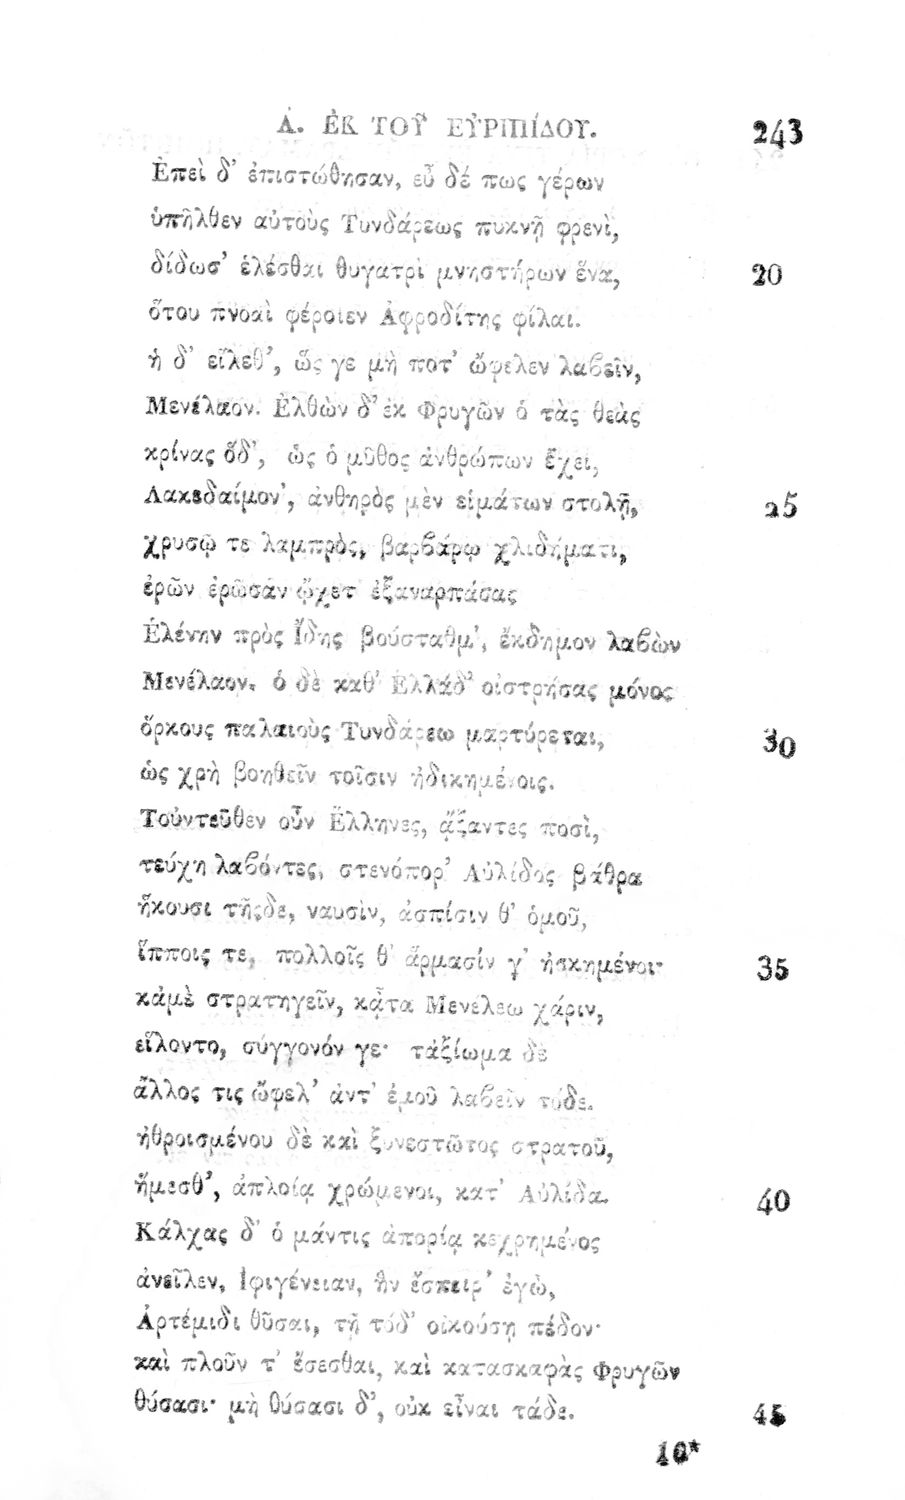 Α. ἘΚ ΤΟΥ͂ ΕΥ̓ΡΙΠΊΔΟΥ. 243
Ἐπεὶ δ’ ἐπιστώθησαν, εὖ δέ πως γέρων
ὑπῆλθεν αὐτοὺς Τυνδάρεως πυκνῇ φρενὶ,
δίδωσ’ ἑλέσθαι θυγατρὶ μνηστήρων ἕνα, 20
ὅτου πνοαὶ φέροιεν Ἀφροδίτης φίλαι.
ἡ δ’ εἵλεθ’, ὥς γε μὴ ποτ’ ὤφελεν λαϐεῖν,
Μενέλαον. Ἐλθὼν δ’ ἐκ Φρυγῶν ὁ τὰς θεὰς
κρίνας ὅδ’, ὡς ὁ μῦθος ἀνθρώπων ἔχει,
Λακεδαίμον’, ἀνθηρὸς μὲν εἱμάτων στολῇ, 25
χρυσῷ τε λαμπρὸς, βαρϐάρῳ χλιδήματι,
ἐρῶν ἐρῶσαν ᾤχετ’ ἐξαναρπάσας
Ἑλένην πρὸς Ἴδης βούσταθμ’, ἔκδημον λαϐὼν
Μενέλαον. ὁ δὲ καθ’ Ἑλλάδ’ οἰστρήσας μόνος
ὅρκους παλαιοὺς Τυνδάρεω μαρτύρεται, 30
ὡς χρὴ βοηθεῖν τοῖσιν ἠδικημένοις.
Τοὐντεῦθεν οὖν Ἕλληνες, ᾄξαντες ποσὶ,
τεύχη λαϐόντες, στενόπορ’ Αὐλίδος βάθρα
ἥκουσι τῆςδε, ναυσὶν, ἀσπίσιν θ’ ὁμοῦ,
ἵπποις τε, πολλοῖς θ’ ἅρμασίν γ’ ἠσκημένοι· 35
κἀμὲ στρατηγεῖν, κᾆτα Μενέλεω χάριν,
εἵλοντο, σύγγονόν γε· τἀξίωμα δὲ
ἄλλος τις ὤφελ’ ἀντ’ ἐμοῦ λαϐεῖν τόδε.
ἠθροισμένου δὲ καὶ ξυνεστῶτος στρατοῦ,
ἥμεσθ’, ἀπλοίᾳ χρώμενοι, κατ’ Αὐλίδα. 40
Κάλχας δ’ ὁ μάντις ἀπορίᾳ κεχρημένος
ἀνεῖλεν, Ἰφιγένειαν, ἣν ἔσπειρ’ ἐγὼ,
Ἀρτέμιδι θῦσαι, τῇ τόδ’ οἰκούσῃ πέδον·
καὶ πλοῦν τ’ ἔσεσθαι, καὶ κατασκαφὰς Φρυγῶν
θύσασι· μὴ θύσασι δ’, οὐκ εἶναι τάδε. 45
10*